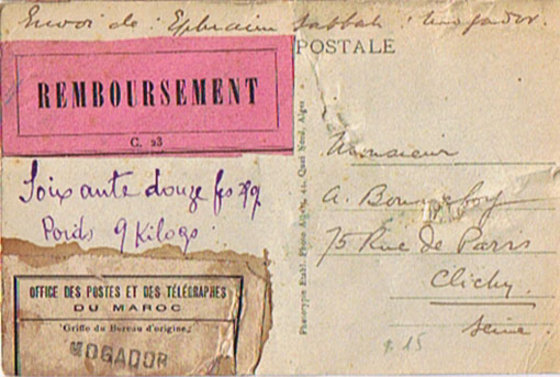 Envoi de : Ephraim Sabbah : Mogador.
POSTALE
REMBOURSEMENT
C. 23
Soixante douze frs
Poids 9 Kilogs
OFFICE DES POSTES ET DES TÉLÉGRAPHES
DU MAROC
Griffe du Bureau d'origine
MOGADOR
Phototypie Etabl. Photo Alger
Monsieur
A.
75 Rue de Paris
Clichy
Seine